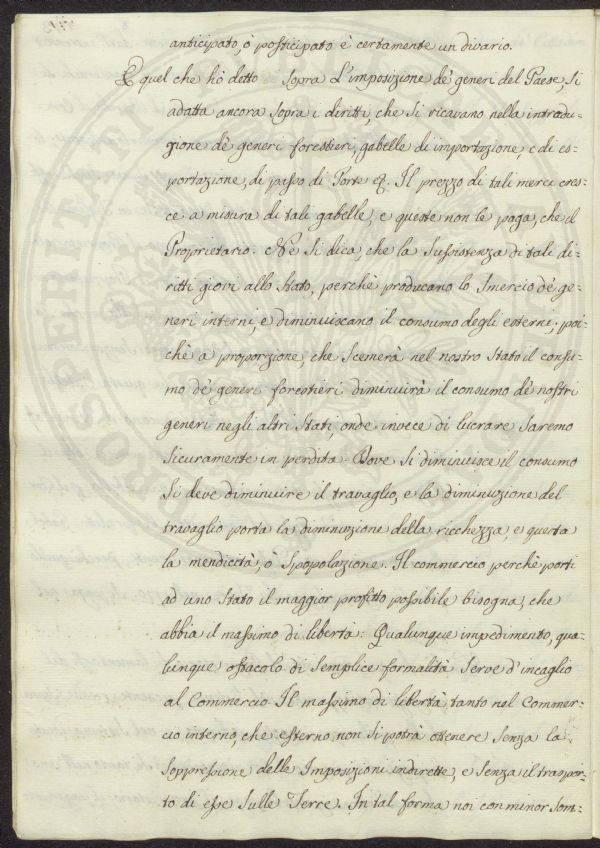 anticipato, ò posticipato è certamente un divario.
E quel che hò detto Sopra L'imposizione de' generi del Paese, Si
adatta ancora Sopra i diritti, che Si ricavano nella introdu-
zione dè generi forestieri, gabelle di importazione, e di es-
portazione, di passo di Porte &. Il prezzo di tali merci cres-
ce a misura di tali gabelle, e queste non le paga, che il
Proprietario. Nè Si dica, che la Sussistenza di tali di-
ritti giovi allo Stato, perchè producano lo Smercio dè ge-
neri interni, e diminuiscano il consumo degli esterni; poi-
chè a proporzione, che Scemerà nel nostro Stato il consu-
mo dè generi forestieri diminuirà il consumo dè nostri
generi negli altri Stati, onde invece di lucrare Saremo
Sicuramente in perdita. Dove Si diminuisce il consumo
Si deve diminuire il travaglio, e la diminuzione del
travaglio porta la diminuzione della ricchezza, e questa
la mendicità, ò Spopolazione. Il commercio perchè porti
ad uno Stato il maggior profitto possibile bisogna, che
abbia il massimo di libertà. Qualunque impedimento, qua-
lunque ostacolo di Semplice formalità Serve d'incaglio
al Commercio Il massimo di libertà tanto nel Commer-
cio interno, che esterno non Si potrà ottenere Senza la
Soppressione delle Imposizioni indirette, e Senza il traspor-
to di esse Sulle Terre. In tal forma noi con minor Som-